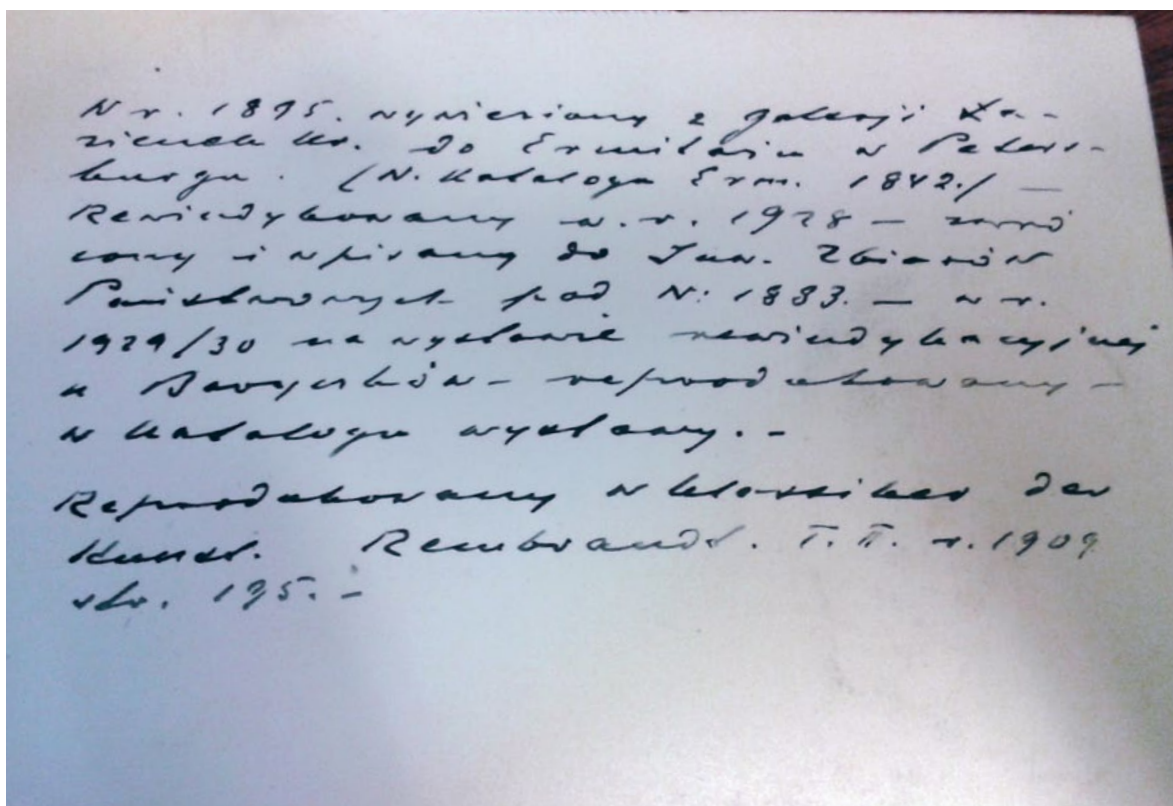 W r. 1895. wywieziony z Galerji Ła-
zienek Kr. do Ermitażu w Peters-
burgu. (N. Katalogu Erm. 1842./ —
Rewindykowany w. r. 1928 — zwró
cony i wpisany do Inw. Zbiorów
Państwowych pod N: 1883. — w r.
1929/30 na wystawie rewindykacyjnej
u Baryczków — reprodukowany —
w katalogu wystawy. -
Reprodukowany w Klassiker der
Kunst. Rembrandt. T. II. r. 1909
str. 195. -